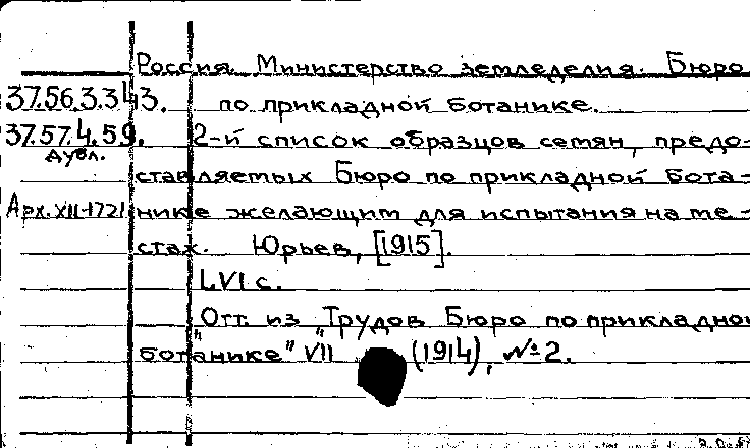 Россия. Министерство земледелия. Бюро
37.56.3.343. по прикладной ботанике.
37.57.4.59. 2-й список образцов семян, предо-
дубл.
ставляемых Бюро по прикладной бота-
Арх. XII-1721 нике желающим для испытания на ме-
стах. Юрьев, [1915].
LVI с.
"Отт. из "Трудов Бюро по прикладной
ботанике" VII (1914), №2.